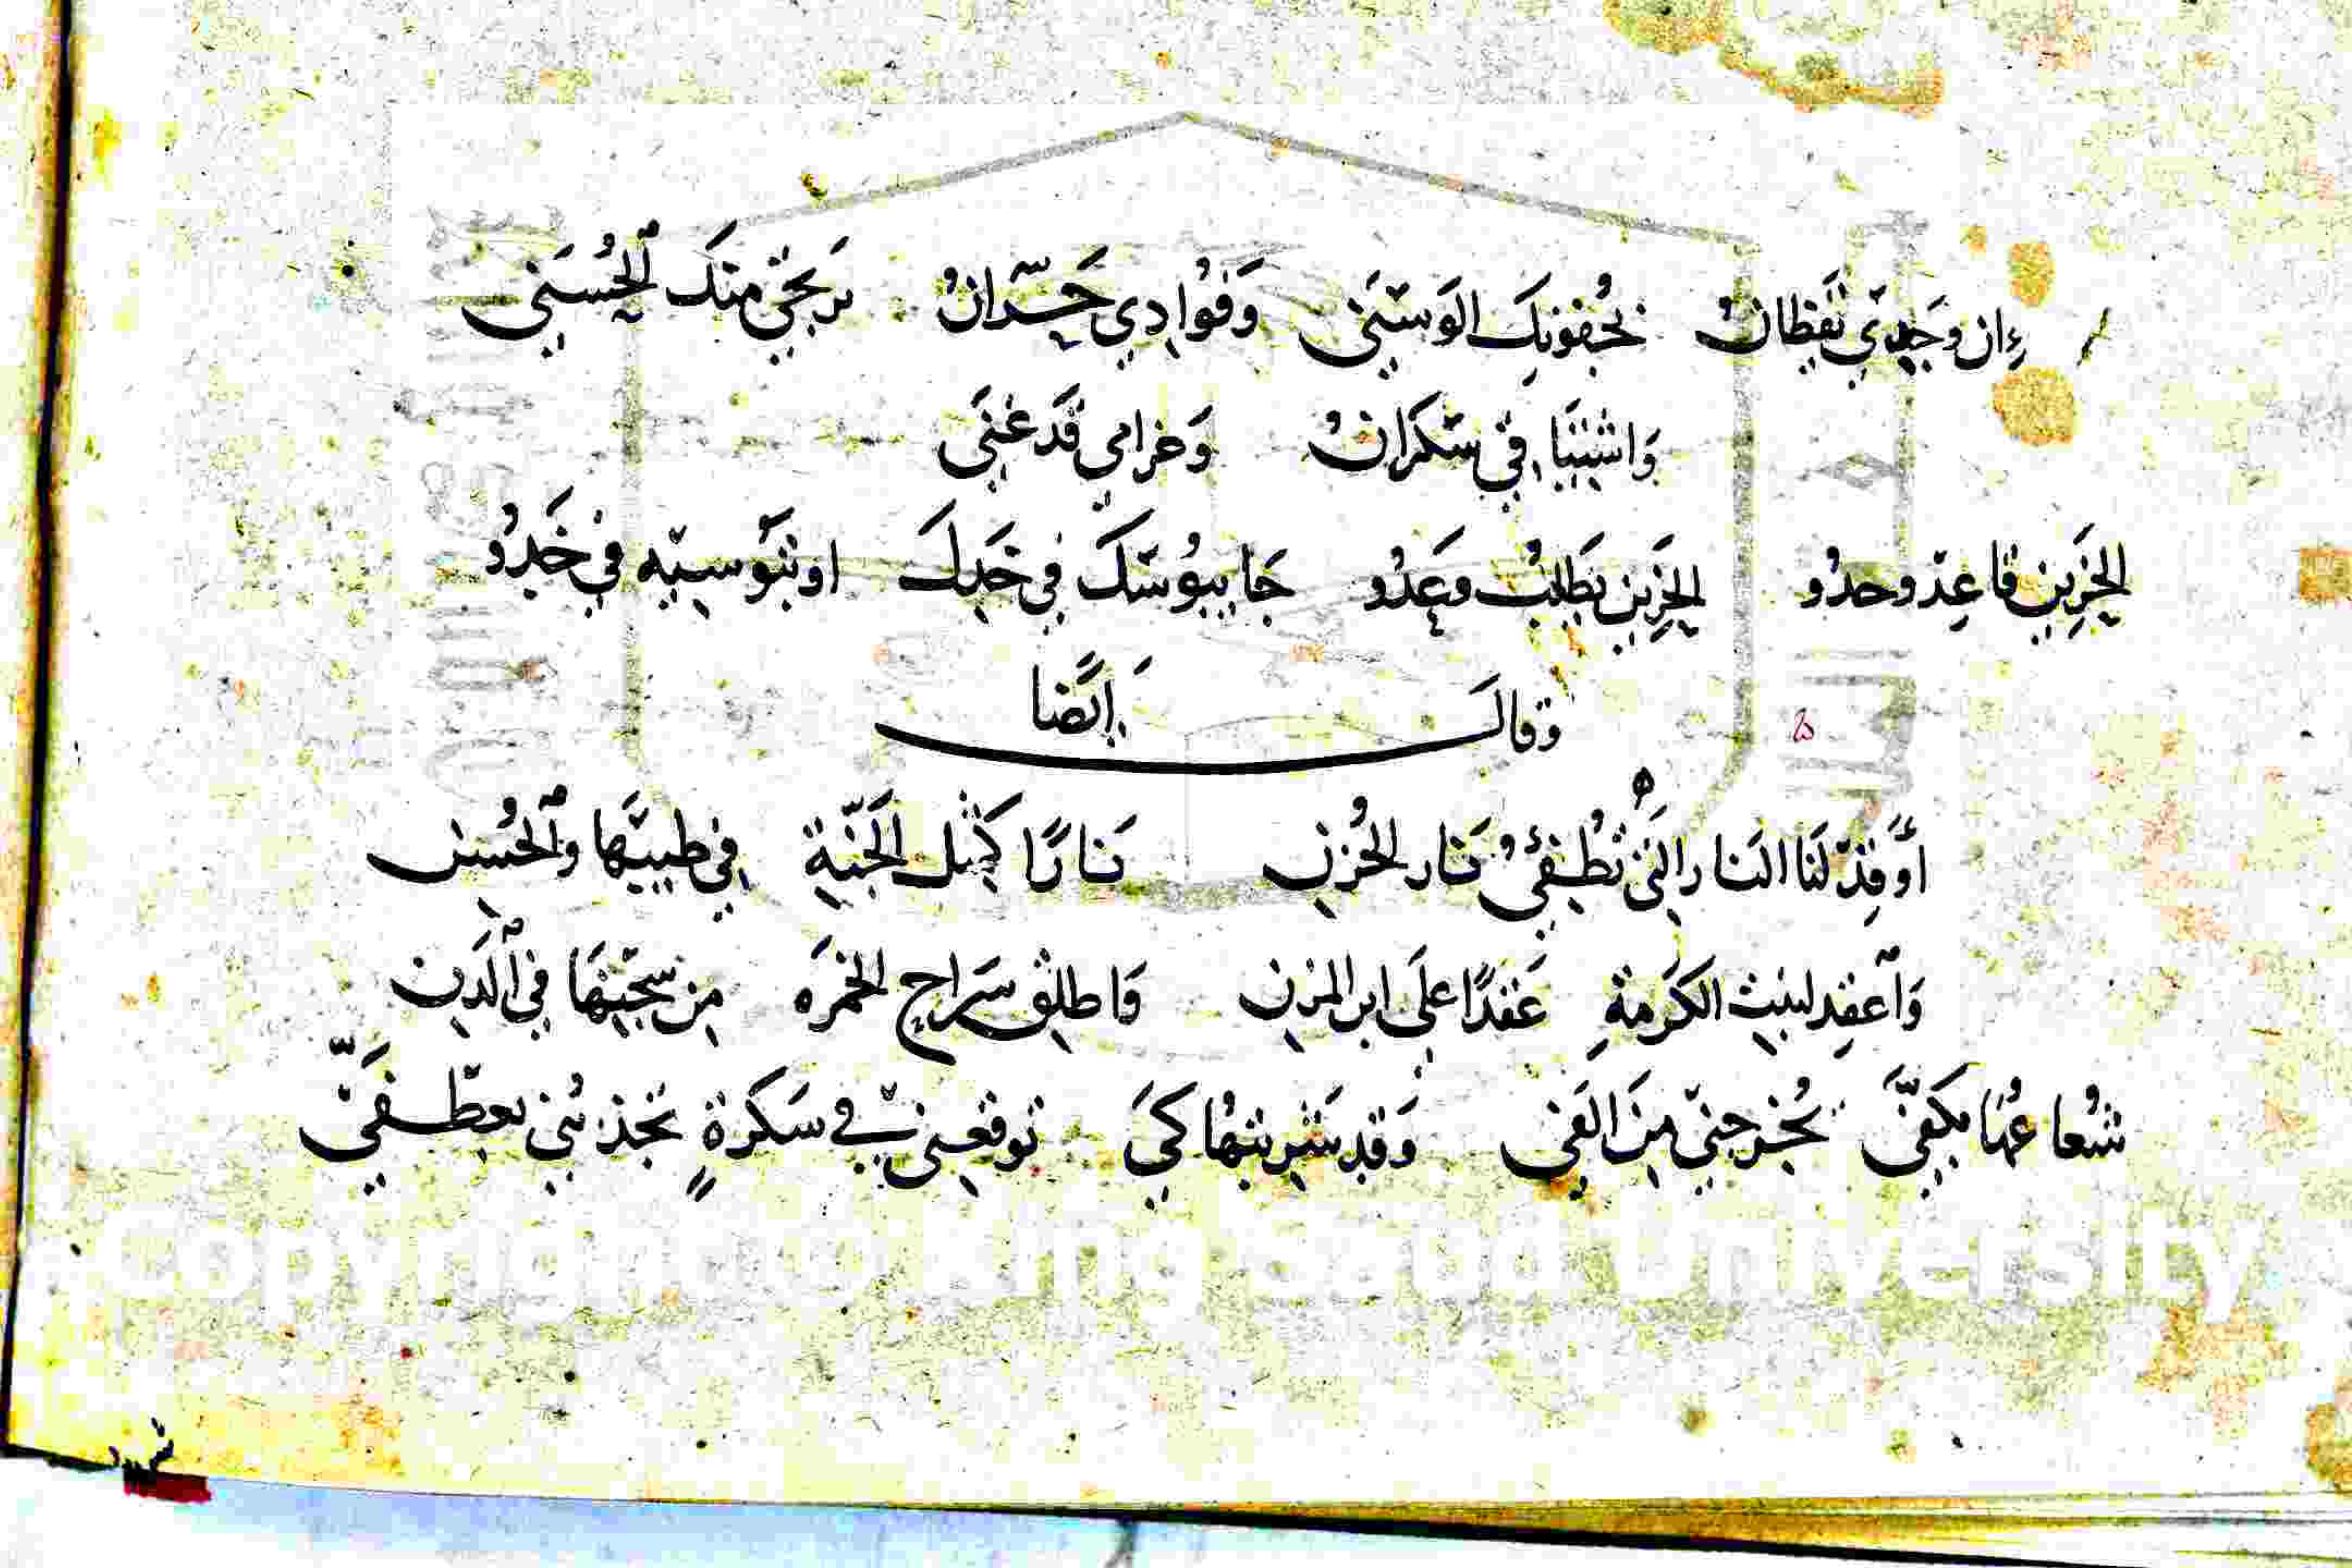 إِن وَجْدِي يَقْظَانْ بِجُفُونِكَ الوَسْنَى وَفُوَادِي حَرَّانْ يَرْتَجِي مِنْكَ الحُسْنَى
وَانْثَنَا فِي سَكْرَانْ وَغَرَامِي قَدْ غَنَّى
الحَزِينْ قَاعِدْ وحدُو الحَزِينْ يَطْلُبْ وَعَدُو جَا يبُوسَكْ فِي خَدِكَ او تبَوسِيهْ فِي خَدُو
وَقَالَ أيضًا
أَوْقِدْ لَنَا النَارَ الَّتِي تُطْفِئُ نَارَ الحُزْنِ نَارًا كَمِثْلِ الجَنَّةِ فِي طِيبِهَا وَالْحُسْنِ
وَاعْقِدْ لِبِنْتِ الكَرْمَةِ عَقْدًا عَلَى ابنِ المُزْنِ وَاطْلِقْ سَرَاحَ الخَمْرَه مِنْ سِجْنِهَا فِي الدَّنِ
شُعَاعُهَا بِكَفِّي تُخْرِجُنِي مِنَ الغَي وَقَدْ شَرِبْتُهَا كَي تُوقِعَنِي فِي سَكْرَةٍ تَجْذِبُنِي بعِطْفَيّ
Copyright © King Saud University